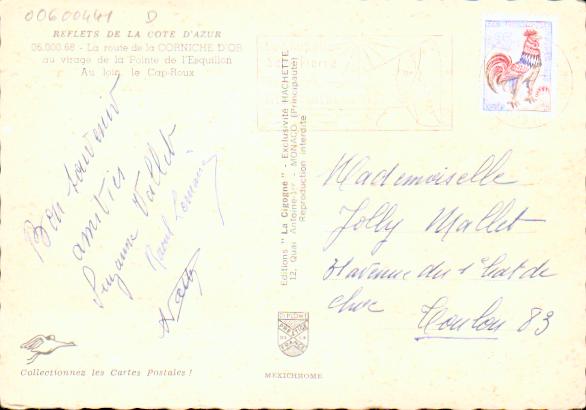 00600441 D
REFLETS DE LA COTE D'AZUR
06.000.68 - La route de la CORNICHE D'OR
au virage de la Pointe de l'Esquillon
Au loin, le Cap-Roux
Bon souvenir
amitiés
Suzanne Vallet
Raoul
Editions "La Cigogne" - Exclusivité HACHETTE
12, Quai Antoine-1er - MONACO (Principauté)
Reproduction interdite
Mademoiselle
Jolly Mallet
avenue du 1 Bat de
choc
Toulon 83
Collectionnez les Cartes Postales !
MEXICHROME